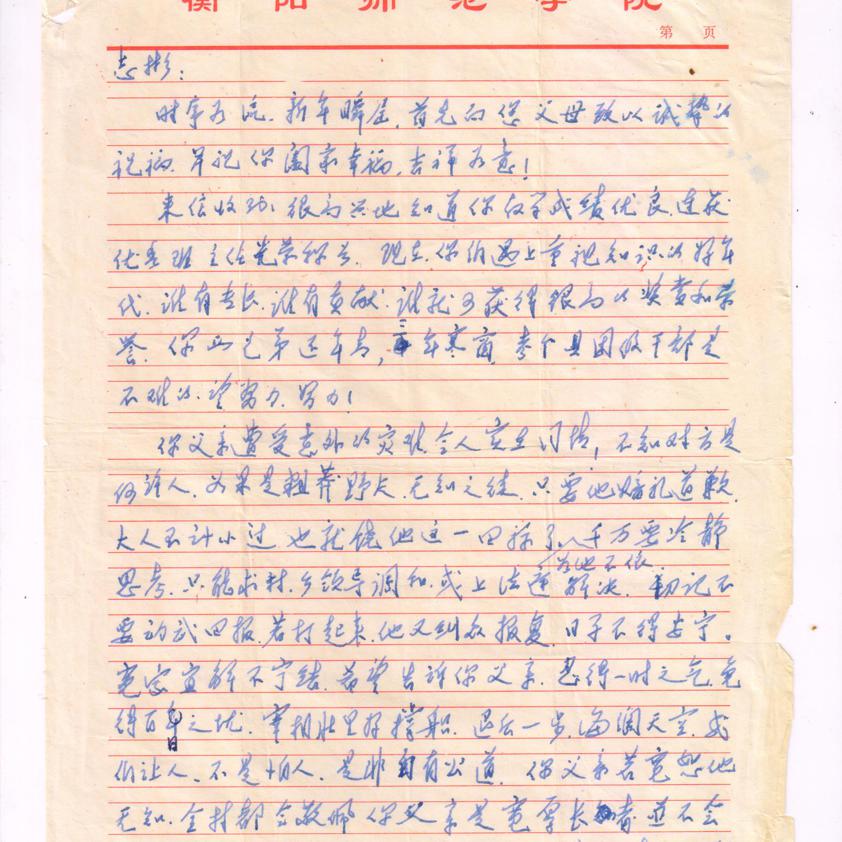 衡阳师范学院
第 页
志彬：
时率如流，新年瞬届，首先向您父母致以诚挚的
祝福，并祝你阖家幸福，吉祥如意！
来信收到，很高兴地知道你教学成绩优良，连获
优秀班主任光荣称号。现在，你们遇上重视知识的好年
代，谁有专长，谁有贡献，谁就可获得很高的奖赏和荣
誉。你 已 年 ，三年寒窗，拿个县团级干部是
不难的，望努力，努力！
你父亲遭受意外的灾难，令人实在同情，不知对方是
何许人，如果是粗莽野夫，无知之徒，只要他赔礼道歉，
大人不计小过，也就饶他这一回算了，千万要冷静
思考，只能求村、乡领导调和，若他不依，或上法庭解决，切记不
要动武回报，若打起来，他又纠众报复，日子不得安宁。
冤家宜解不宜结，希望告诉你父亲，忍得一时之气，免
得百日之忧，宰相肚里好撑船，退后一步，海阔天空，我
们让人，不是怕人，是非自有公道，你父亲若宽恕他
无知，全村都会敬佩你父亲是宽厚长者，并不会